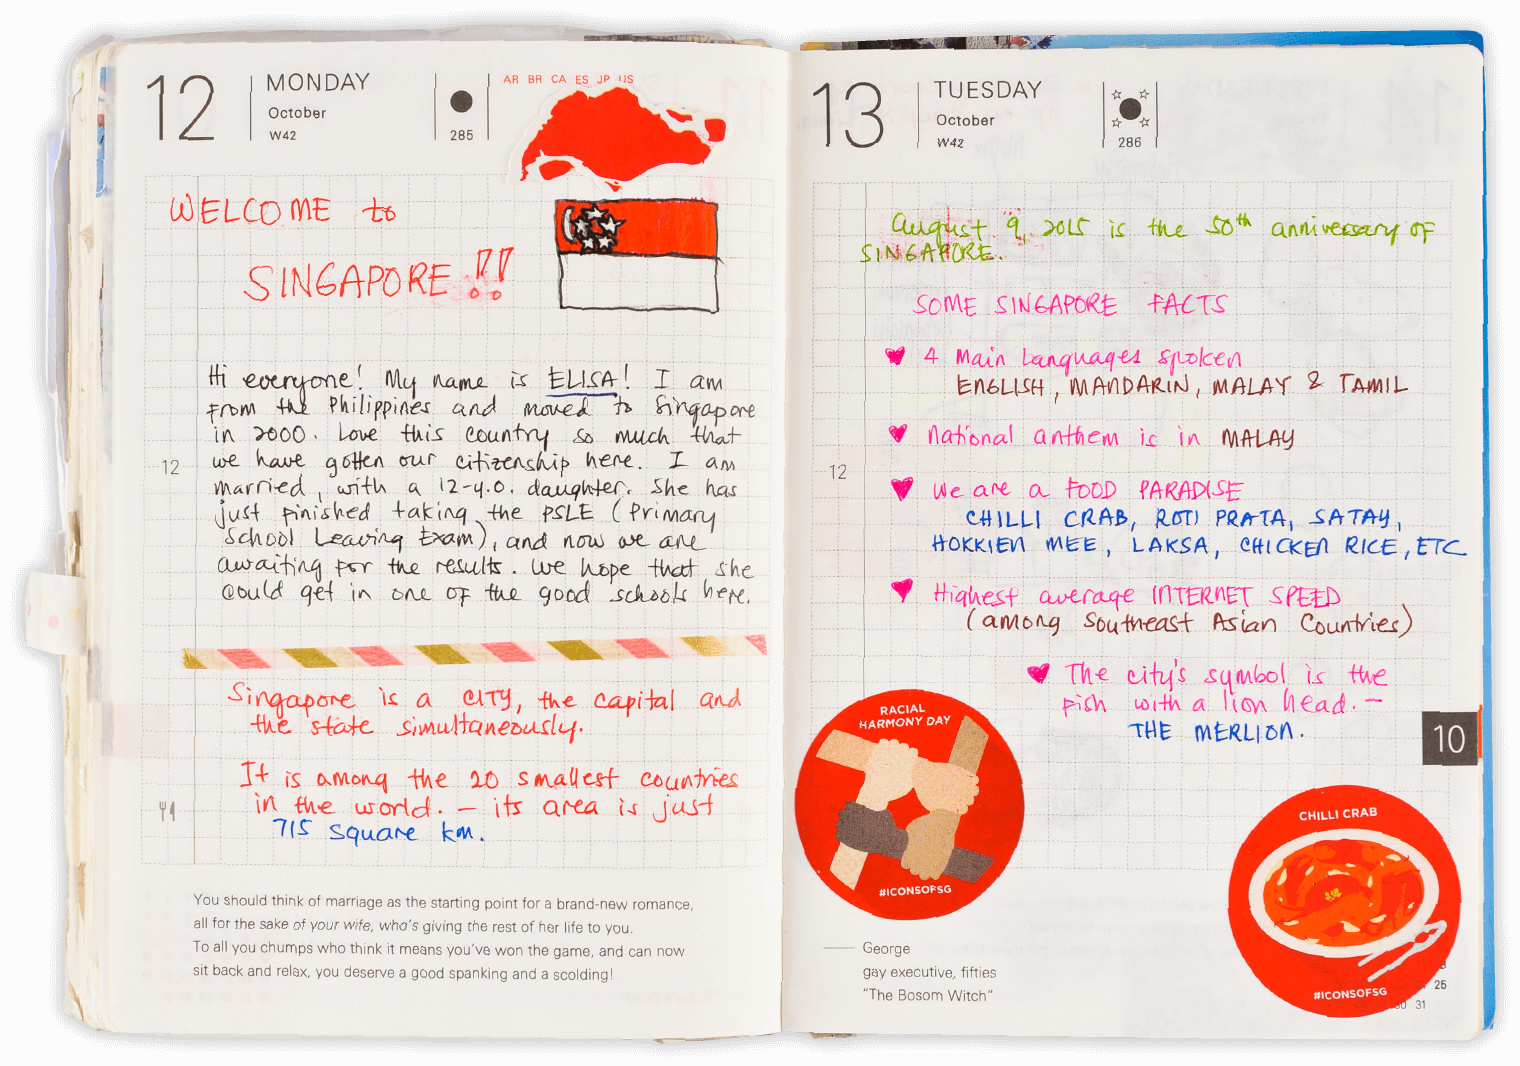 12
MONDAY
October
W42
285
AR BR CA ES JP US
WELCOME to
SINGAPORE!!
Hi everyone! My name is ELISA! I am
from the Philippines and moved to Singapore
in 2000. Love this country so much that
we have gotten our citizenship here. I am
12
married, with a 12-y.o. daughter. She has
just finished taking the PSLE (Primary
School Leaving Exam), and now we are
awaiting for the results. We hope that she
could get in one of the good schools here.
Singapore is a CITY, the capital and
the state simultaneously.
It is among the 20 smallest countries
in the world. – its area is just
715 square km.
You should think of marriage as the starting point for a brand-new romance,
all for the sake of your wife, who's giving the rest of her life to you.
To all you chumps who think it means you've won the game, and can now
sit back and relax, you deserve a good spanking and a scolding!
13
TUESDAY
October
W42
286
August 9, 2015 is the 50th anniversary of
SINGAPORE.
SOME SINGAPORE FACTS
4 Main Languages spoken
ENGLISH, MANDARIN, MALAY & TAMIL
National anthem is in MALAY
12
We are a FOOD PARADISE
CHILLI CRAB, ROTI PRATA, SATAY,
HOKKIEN MEE, LAKSA, CHICKEN RICE, ETC
Highest average INTERNET SPEED
(among Southeast Asian Countries)
The city's symbol is the
fish with a lion head. –
THE MERLION.
10
RACIAL
HARMONY DAY
#ICONSOFSG
CHILLI CRAB
#ICONSOFSG
George
gay executive, fifties
"The Bosom Witch"
25
31